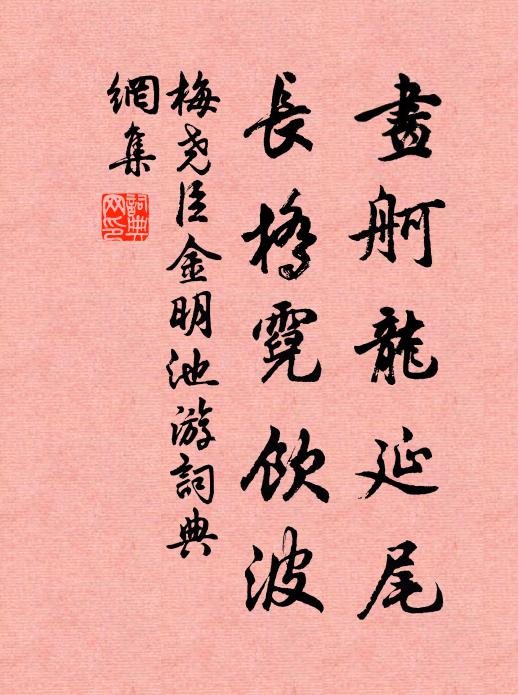 畫舸龍延尾
長橋霓飲波
梅尧臣金明池游詞典
網集
詞典
网印